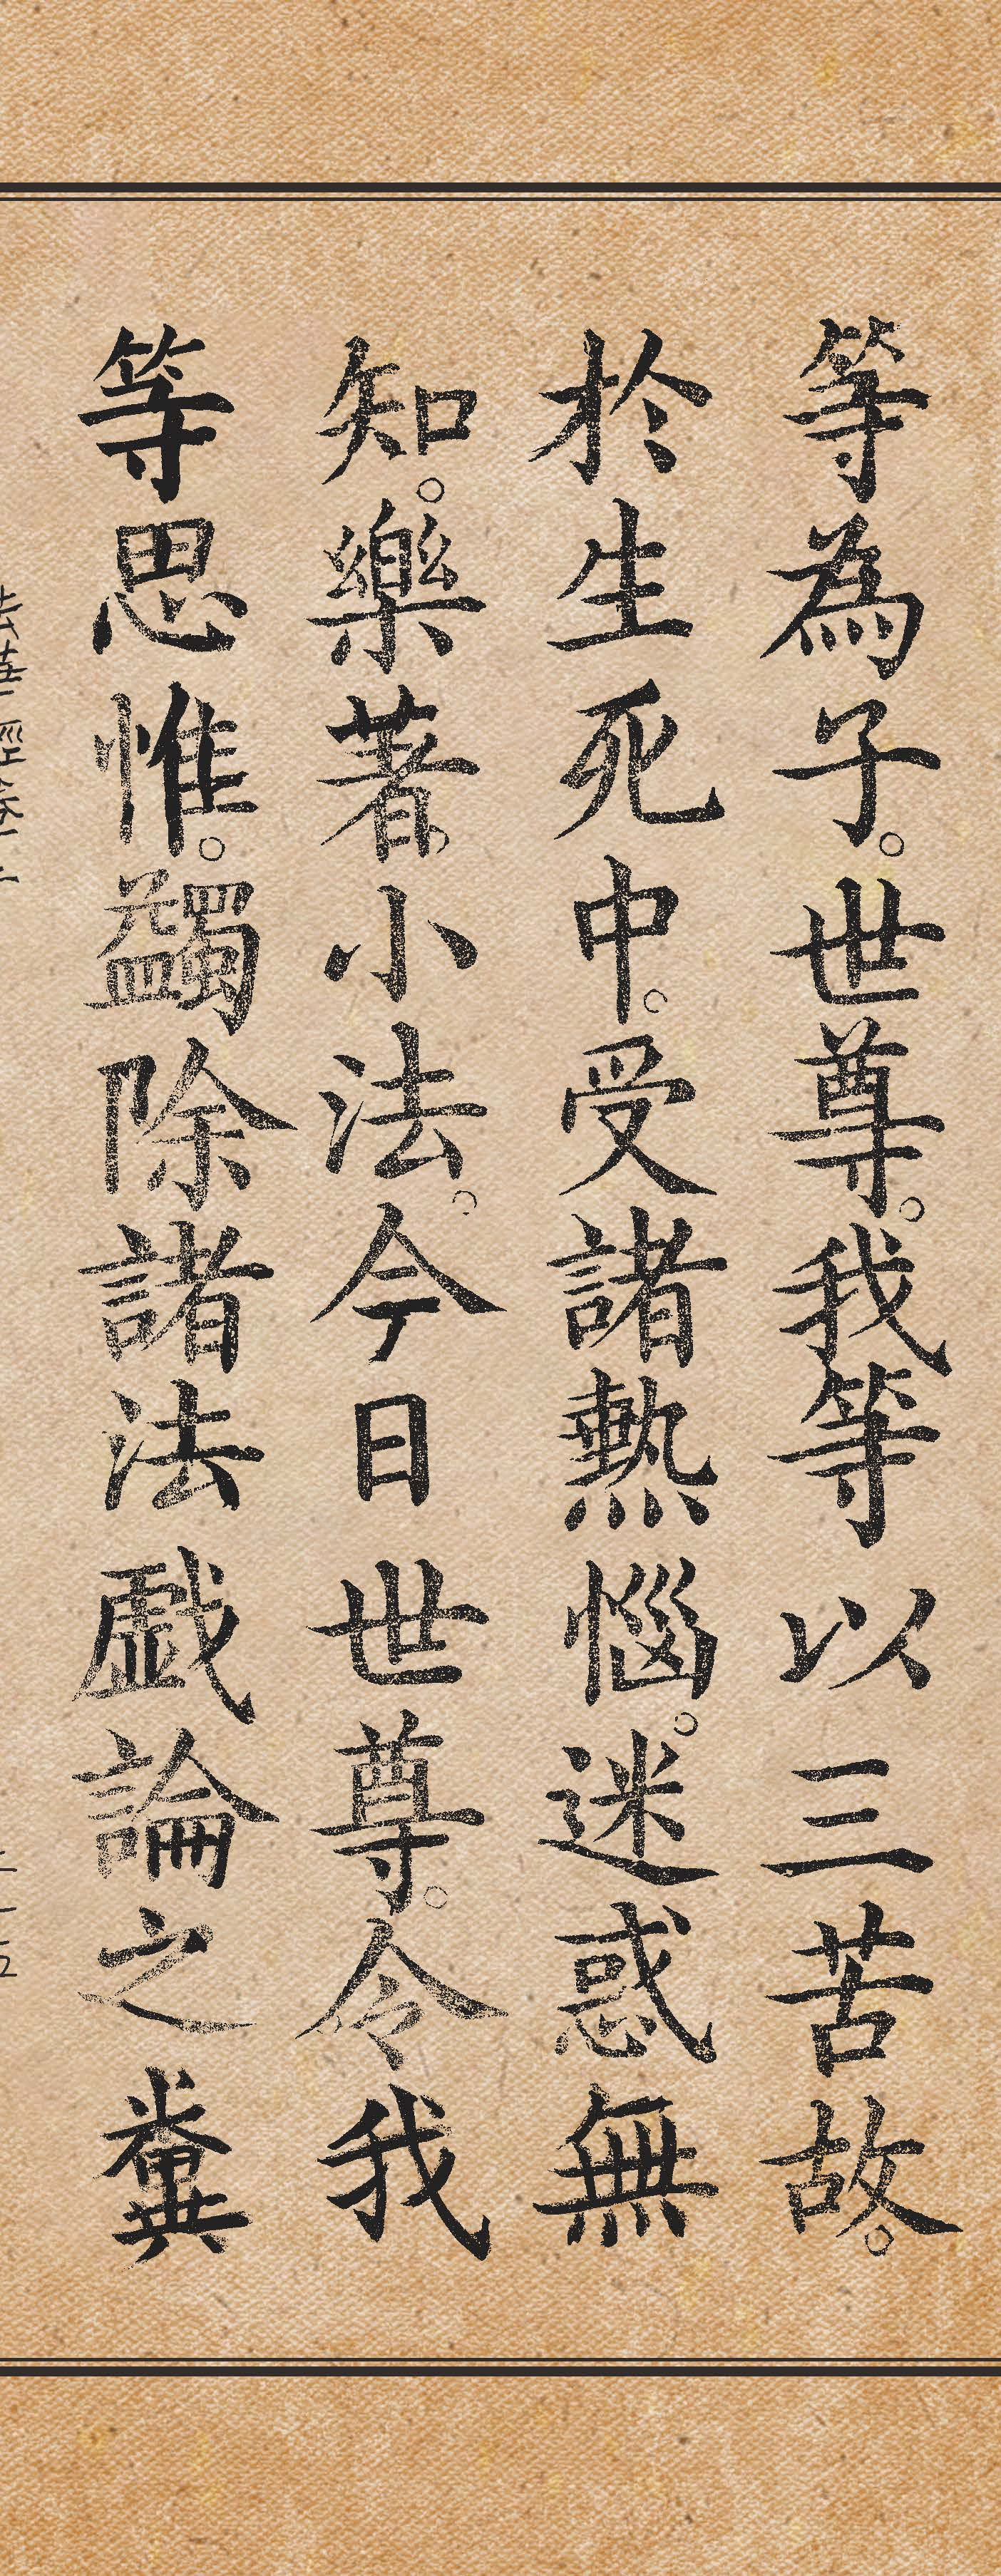 等為子。世尊。我等以三苦故。
於生死中。受諸熱惱。迷惑無
知。樂著小法。今日世尊。令我
等思惟。蠲除諸法戲論之糞